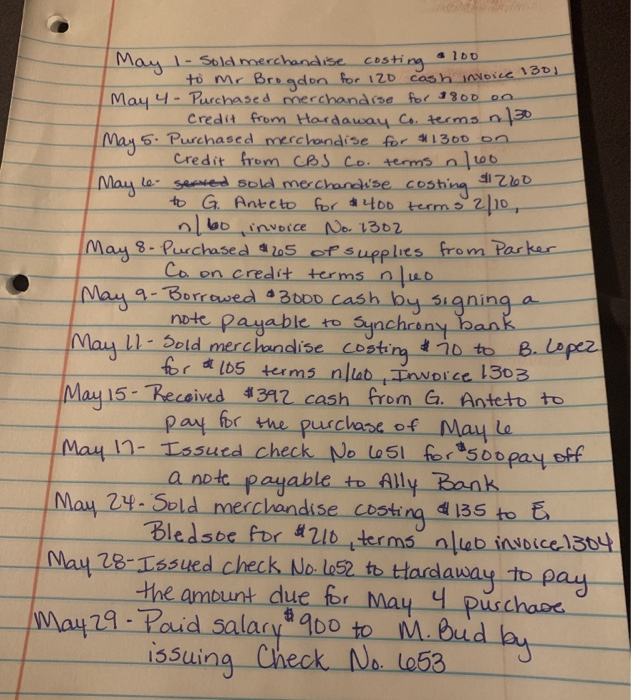 May 1 - Sold merchandise costing $100
to Mr Brogdon for 120 cash invoice 1301
May 4 - Purchased merchandise for $800 on
credit from Hardaway Co. terms n/30
May 5. Purchased merchandise for $1300 on
Credit from CBS Co. terms n/60
May 6 - served sold merchandise costing $260
to G. Anteto for $400 terms 2/10,
n/60, invoice No. 1302
May 8 - Purchased $205 of supplies from Parker
Co. on credit terms n/60
May 9 - Borrowed $3000 cash by signing a
note payable to Synchrony bank
May 11 - Sold merchandise costing $70 to B. Lopez
for $105 terms n/60, Invoice 1303
May 15 - Received $392 cash from G. Anteto to
pay for the purchase of May 6
May 17 - Issued check No 651 for $500 pay off
a note payable to Ally Bank
May 24 - Sold merchandise costing $135 to E.
Bledsoe for $210, terms n/60 invoice 1304
May 28 - Issued check No. 652 to Hardaway to pay
the amount due for May 4 purchase
May 29 - Paid salary $900 to M. Bud by
issuing Check No. 653